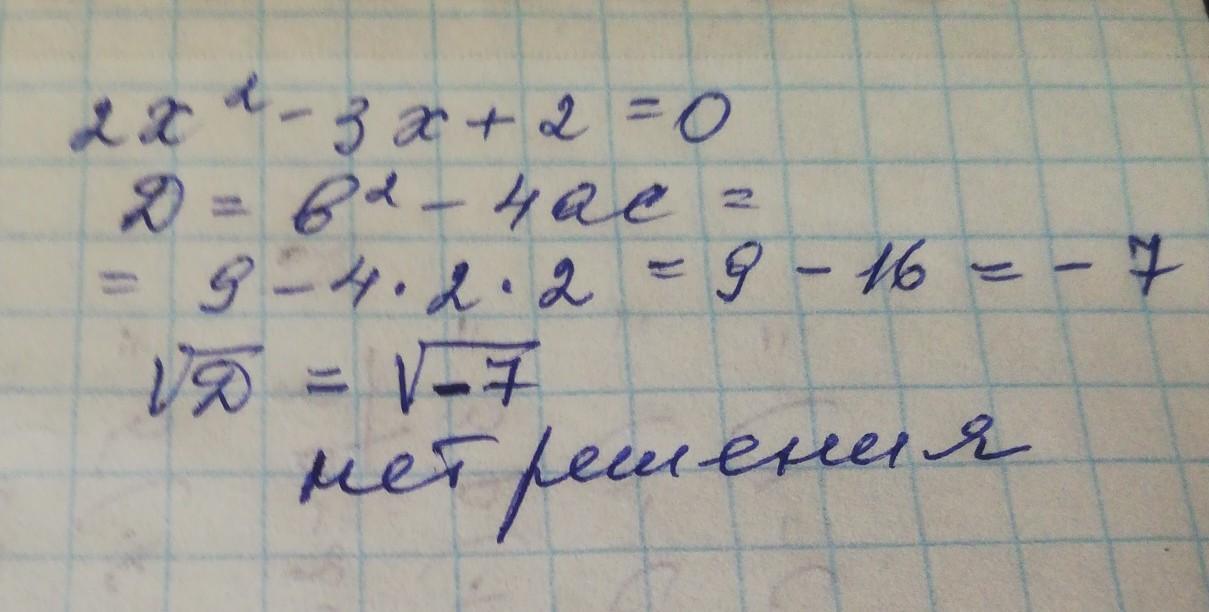 2x² - 3x + 2 = 0
D = b² - 4ac =
= 9 - 4 · 2 · 2 = 9 - 16 = - 7
√D = √-7
нет решения